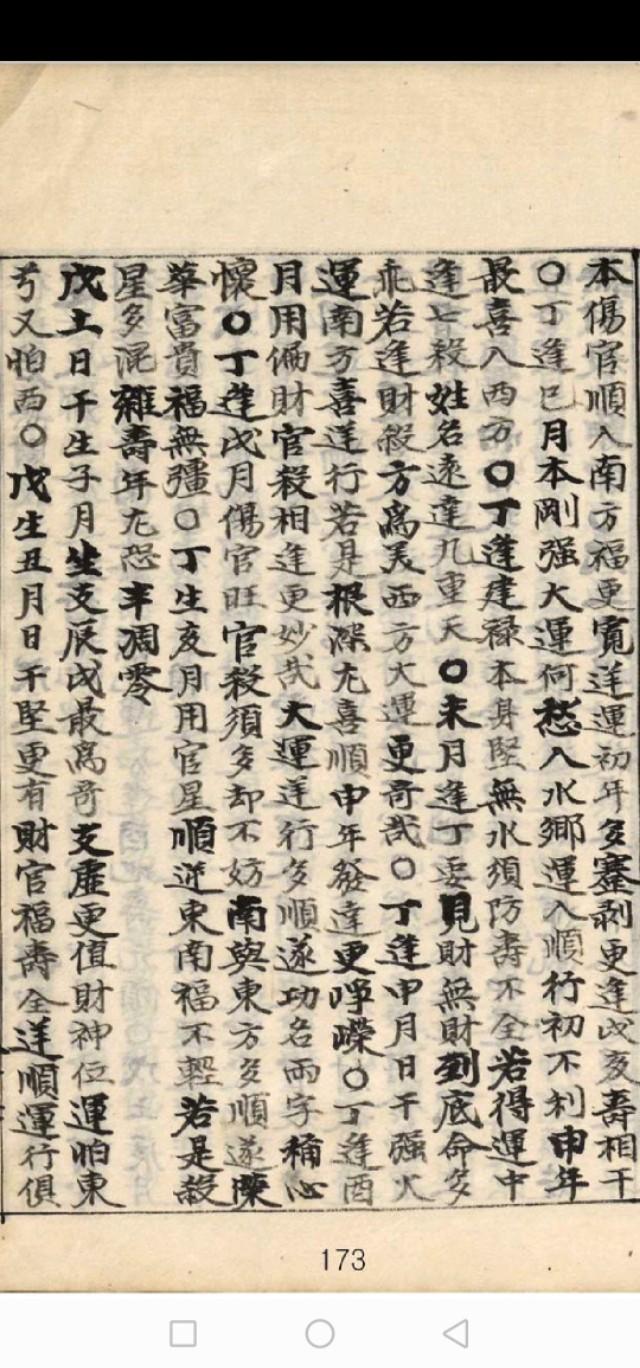 本傷官順入南方福更寬逆運初年多蹇剥更逢戌亥壽相干
〇丁逢巳月本剛强大運何愁入水鄉運入順行初不利申年
最喜入西方〇丁逢建禄本身堅無水須防壽不全若得運中
逢七殺姓名遠達九重天〇未月逢丁要見財無財到底命多
乖若逢財殺方為美西方大運更奇哉〇丁逢申月日干强火
運南方喜逆行若是根深尤喜順中年發達更崢嶸〇丁逢酉
月用偏財官殺相逢更妙哉大運逆行多順遂功名兩字稱心
懷〇丁逢戌月傷官旺官殺須多却不妨南與東方多順遂榮
華富貴福無疆〇丁生亥月用官星順逆東南福不輕若是殺
星多混雜壽年尤恐半凋零
戊土日干生子月坐支辰戌最為奇支虛更值財神位運怕東
兮又怕西〇戊生丑月日干堅更有財官福壽全逆順運行俱
173